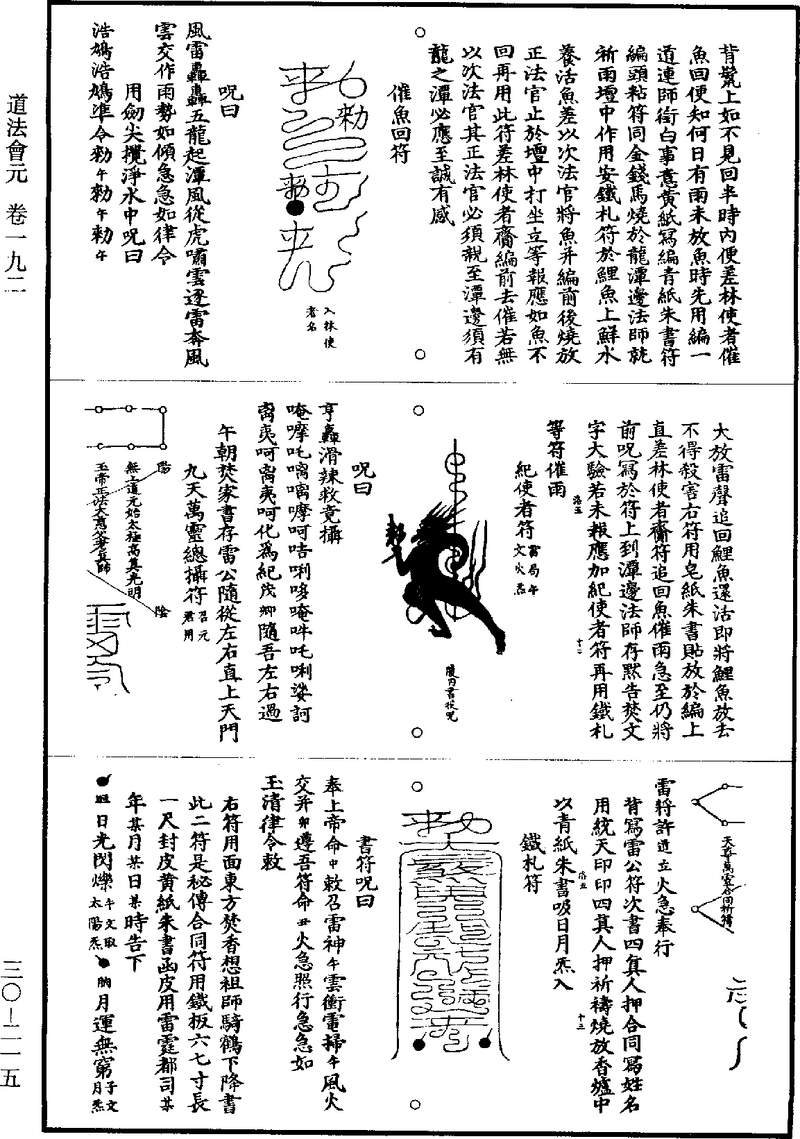 道法會元　卷一九二
三〇－二一五
背鬣上如不見回半時內便差林使者催
魚回便知何日有雨未放魚時先用編一
道連師銜白事意黃紙寫編青紙朱書符
編頭粘符同金錢馬燒於龍潭邊法師就
祈雨壇中作用安鐵札符於鯉魚上鮮水
養活魚差以次法官將魚并編前後燒放
正法官止於壇中打坐立等報應如魚不
回再用此符差林使者齎編前去催若無
以次法官其正法官必須親至潭邊須有
龍之潭必應至誠有感
催魚回符
入林使
者名
呪曰
風雷轟轟五龍起潭風從虎嘯雲逐雷奔風
雲交作雨勢如傾急急如律令
用劍尖攪淨水中呪曰
浩鳩浩鳩準令勑午勑午勑午
大放雷聲追回鯉魚還活即將鯉魚放去
不得殺害右符用皂紙朱書貼放於編上
直差林使者齎符追回魚催雨急至仍將
前呪寫於符上到潭邊法師存默告焚文
字大驗若未報應加紀使者符再用鐵札
等符催雨
紀使者符
雷局午
文火炁
腹內書後呪
呪曰
亨轟滑辣救竟攝
唵摩吒𠿒𠿒摩呵咭唎哆唵吽吒唎娑訶
离夷呵离夷呵化為紀茂卿隨吾左右過
午朝焚家書存雷公隨從左右直上天門
九天萬靈總攝符召元
君用
陽
無上道元始太極高真光明
玉帝正法大慈父者真師
陰
天尊萬靈合同祈禱
雷將許進立火急奉行
背寫雷公符次書四真人押合同寫姓名
用統天印印四真人押祈禱燒放香爐中
以青紙朱書吸日月炁入
鐵札符
書符呪曰
奉上帝命中敕召雷神午雲衝電掃午風火
交并卯遵吾符命丑火急照行急急如
玉清律令敕
右符用面東方焚香想祖師騎鶴下降書
此二符是秘傳合同符用鐵板六七寸長
一尺封皮黃紙朱書函皮用雷霆都司某
年某月某日某時告下
日光閃爍午文取
太陽炁
月運無窮子文
月炁